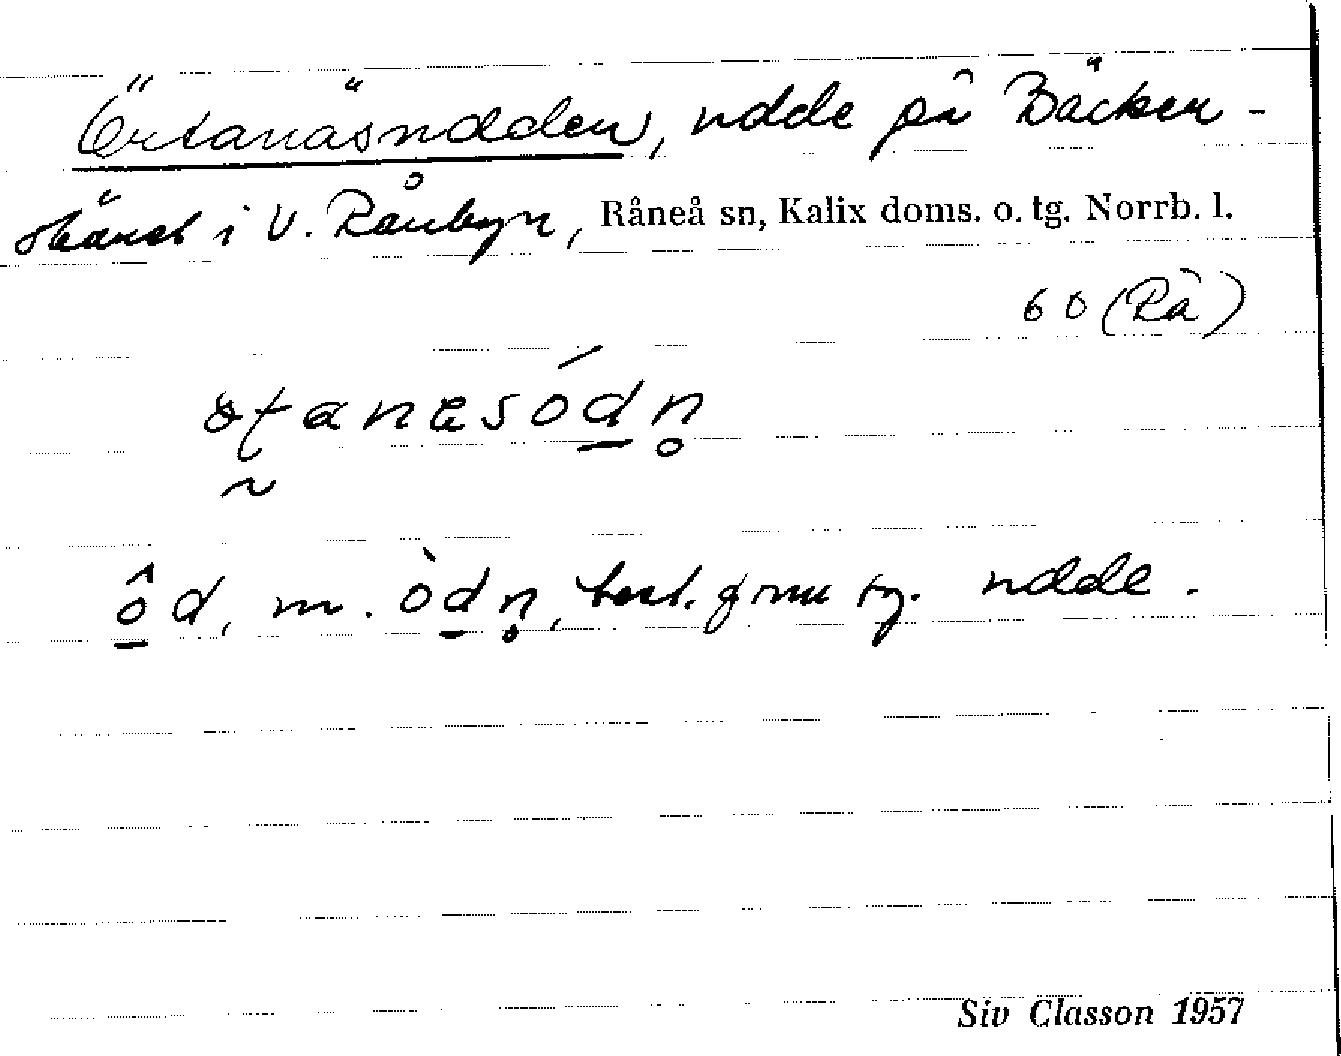 Örtanäsudden, udde på Bäcker-
skäret i V. Rånbyn, Råneå sn, Kalix doms. o. tg. Norrb. l.
60 (Rå)
ôd, m. òdn, best. form sg. udde.
Siv Classon 1957